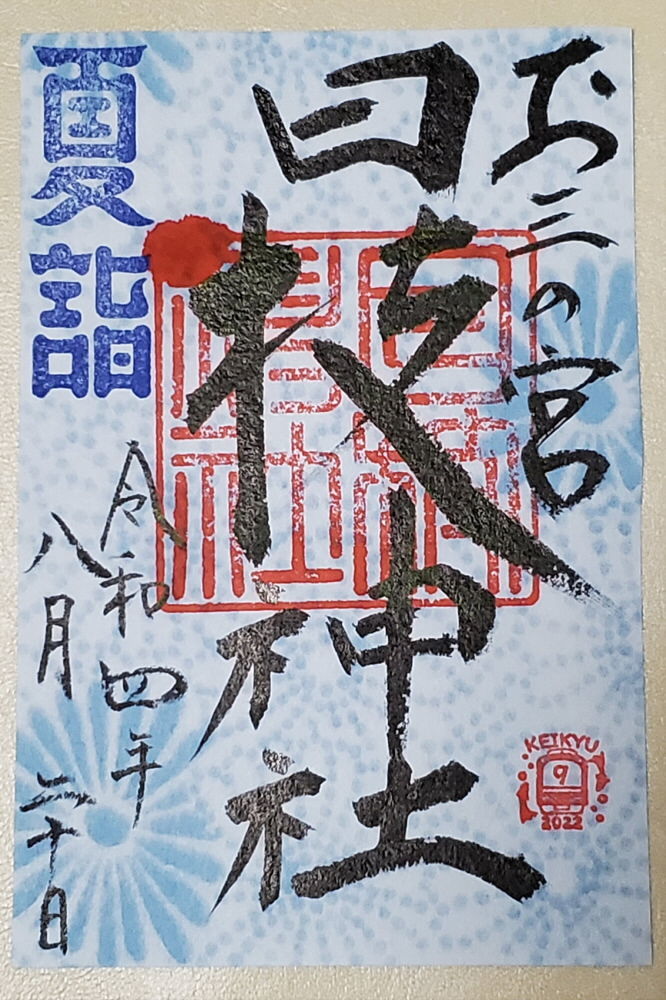 お三の宮
日枝神社
夏詣
令和四年
八月二十日
KEIKYU
9
2022